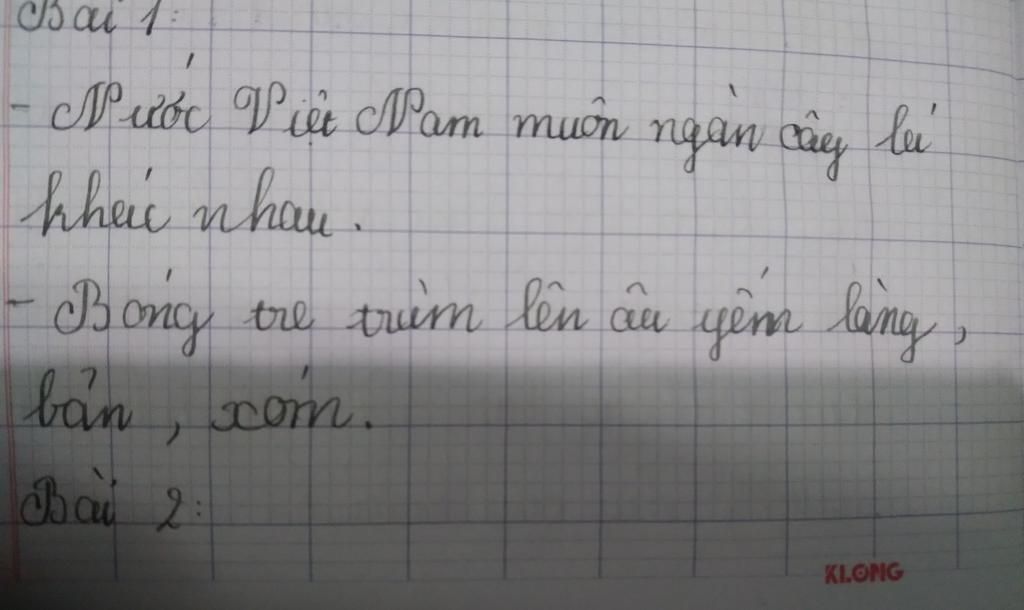 Bài 1:
- Nước Việt Nam muôn ngàn cây lá
khác nhau.
- Bóng tre trùm lên âu yếm làng,
bản, xóm.
Bài 2:
KLONG